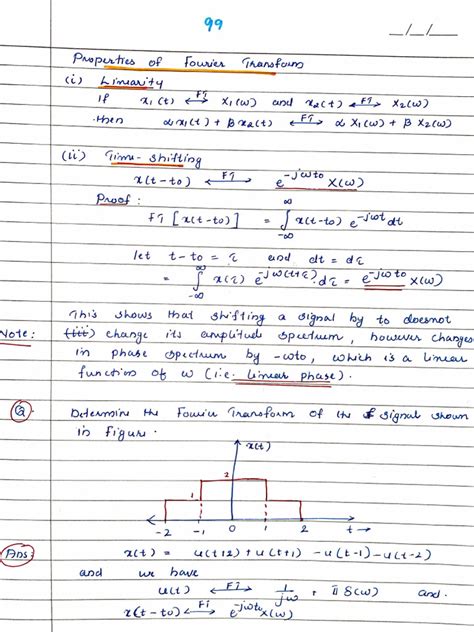 99
_/_/_
Properties of Fourier Transform
(i) Linearity
If x₁(t) ⟷FT X₁(ω) and x₂(t) ⟷FT X₂(ω)
then αx₁(t) + βx₂(t) ⟷FT αX₁(ω) + βX₂(ω)
(ii) Time-shifting
x(t-to) ⟷FT e^-jωto X(ω)
Proof:
FT [x(t-to)] = ∫_-∞^∞ x(t-to) e^-jωt dt
let t-to = τ and dt = dτ
= ∫_-∞^∞ x(τ) e^-jω(t+τ) dτ = e^-jωto X(ω)
This shows that shifting a signal by to doesnot
Note: (iii) change its amplitude spectrum, however changes
in phase spectrum by -ωto, which is a linear
function of ω (i.e. linear phase).
Q. Determine the Fourier Transform of the signal shown
in figure.
x(t)
2
1
-2 -1 0 1 2 t→
Ans: x(t) = u(t+2) + u(t+1) - u(t-1) - u(t-2)
and we have
u(t) ⟷FT 1/jω + πδ(ω) and
x(t-to) ⟷FT e^-jωto X(ω)